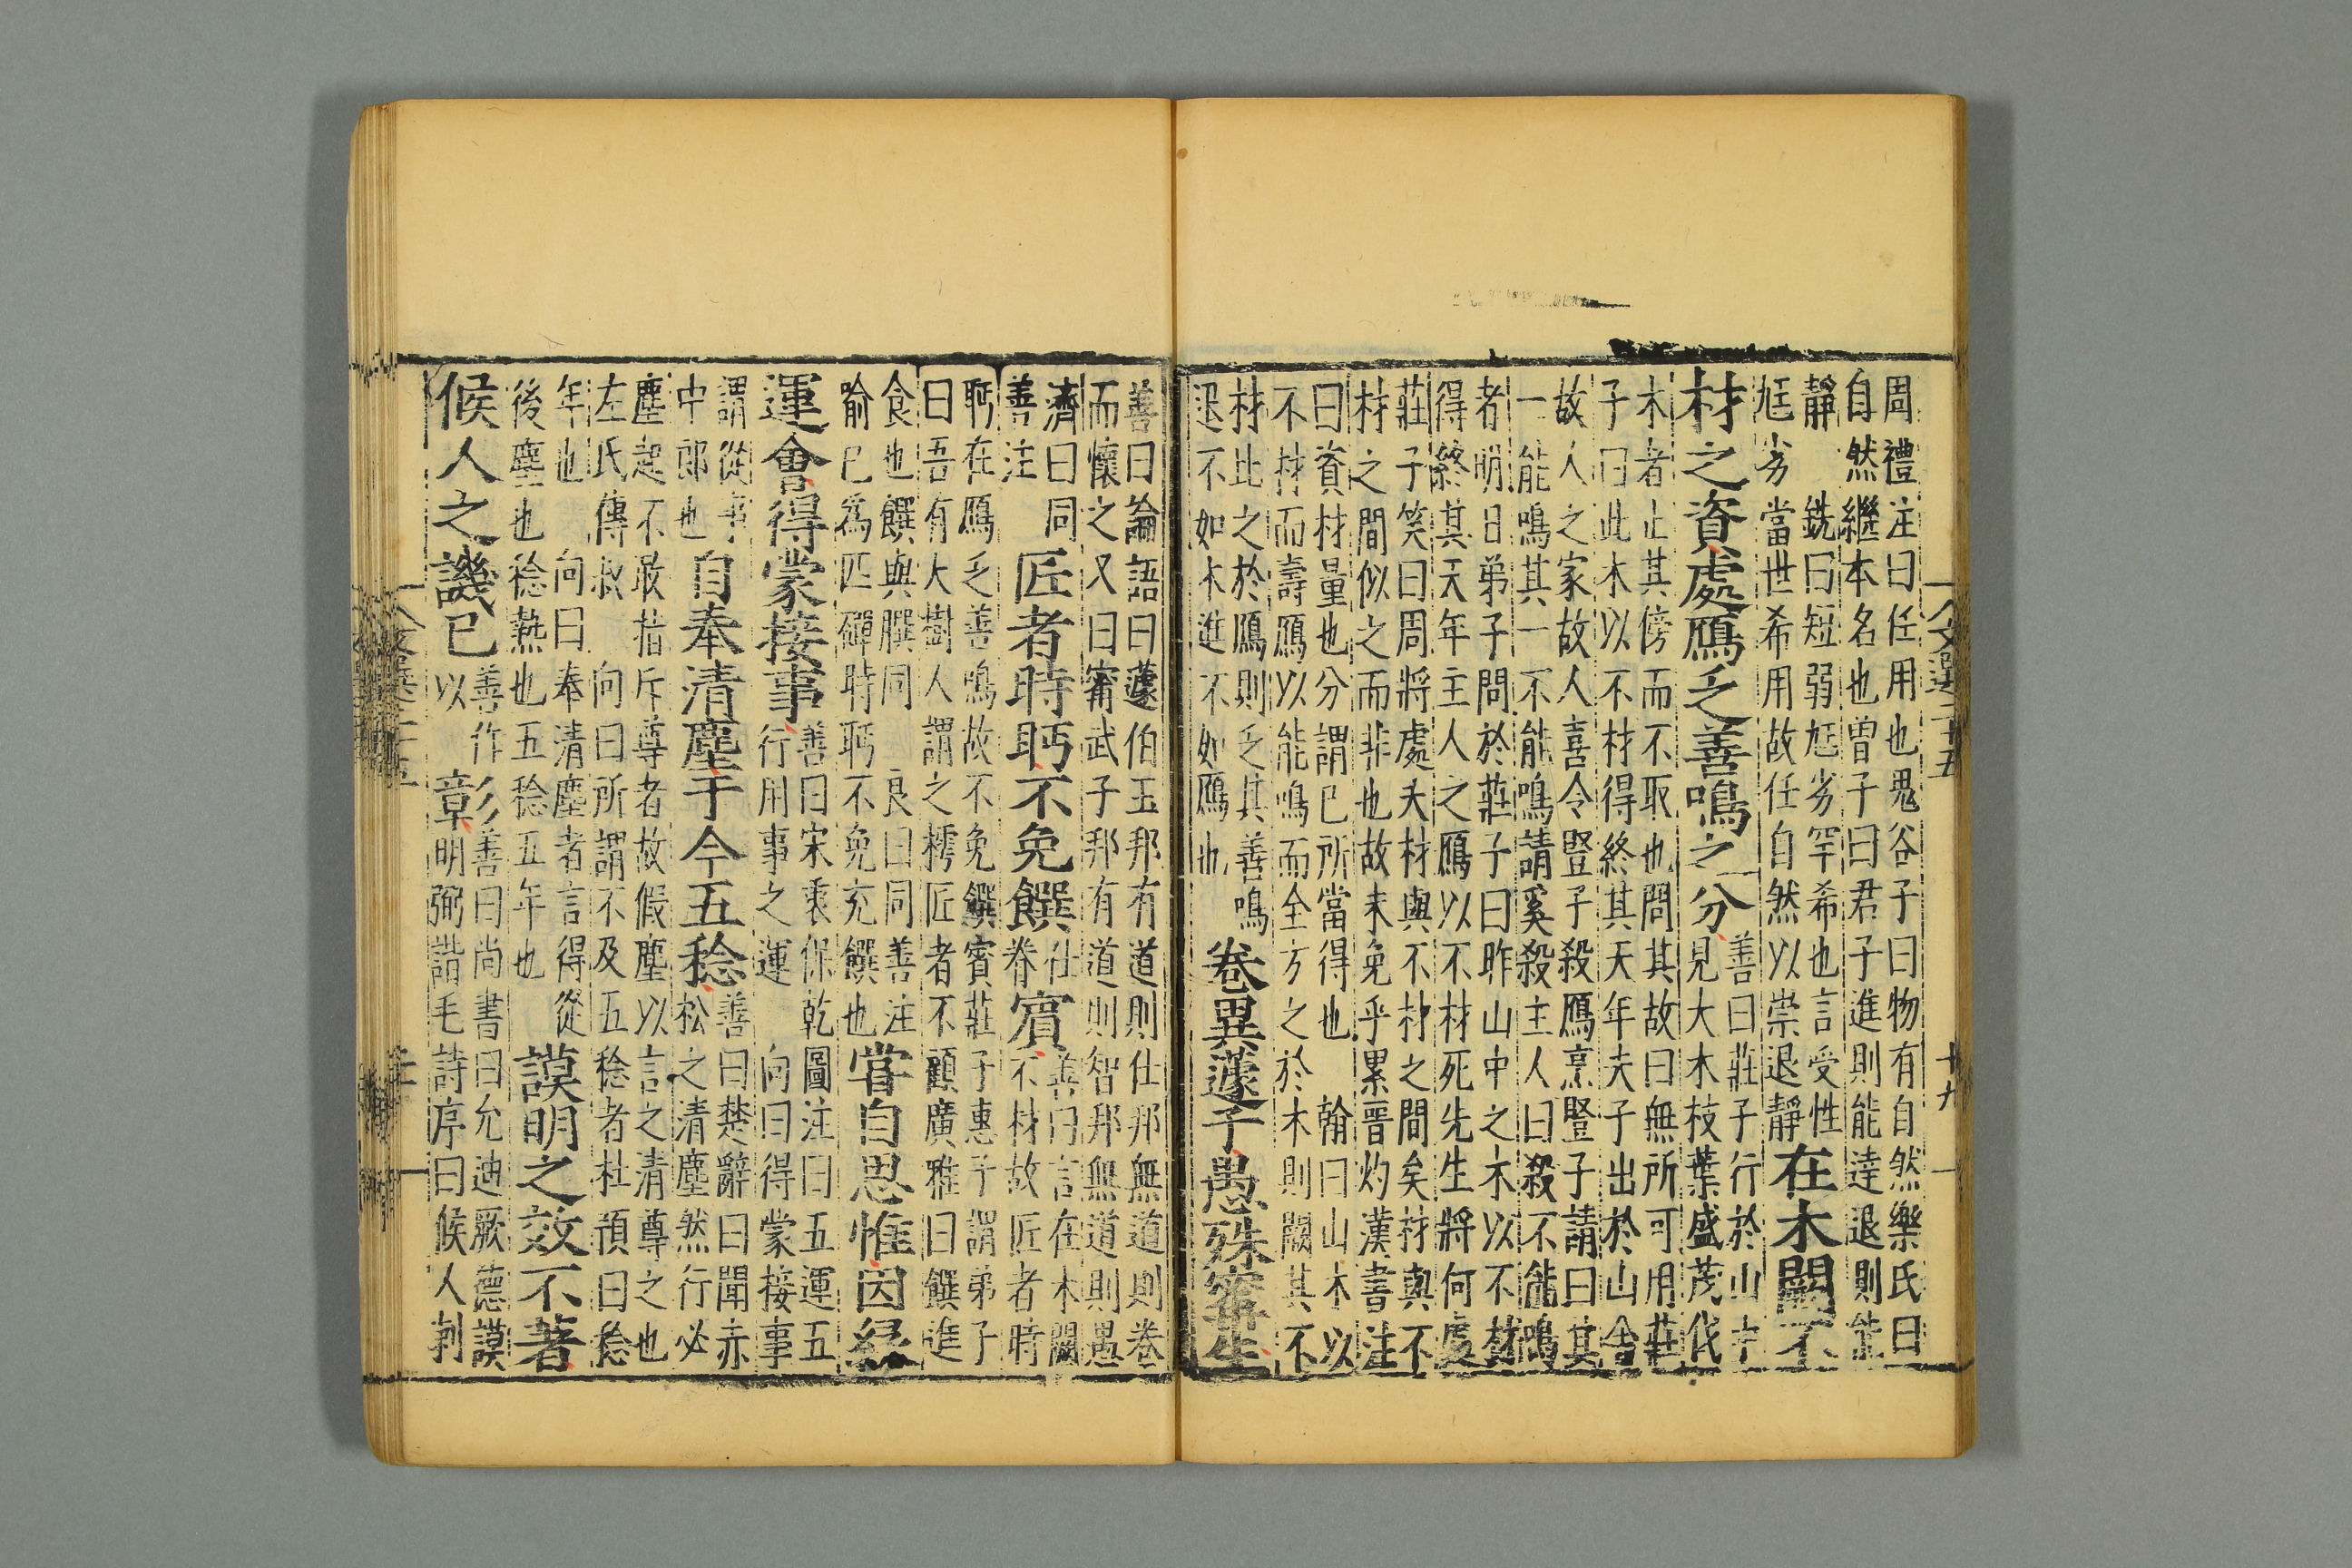 周禮注曰任用也鬼谷子曰物有自然樂氏曰
自然繼本名也曾子曰君子進則能逹退則能
靜 銑曰短弱尪劣罕希也言受性
尪劣當世希用故任自然以崇退靜
在木闕不
材之資處鴈乏善鳴之分
善曰莊子行於山中
見大木枝葉盛茂伐
木者止其傍而不取也問其故曰無所可用莊
子曰此木以不材得終其天年夫子出於山舍
故人之家故人喜令豎子殺鴈烹豎子請曰其
一能鳴其一不能鳴請奚殺主人曰殺不能鳴
者明日弟子問於莊子曰昨山中之木以不材
得終其天年主人之鴈以不材死先生將何處
莊子笑曰周將處夫材與不材之間矣材與不
材之間似之而非也故未免乎累晉灼漢書注
曰資材量也分謂已所當得也 翰曰山木以
不材而壽鴈以能鳴而全方之於木則闕其不
材比之於鴈則乏其善鳴
退不如木進不如鴈也
卷異蘧子愚殊甯生
善曰論語曰蘧伯玉邦有道則仕邦無道則卷
而懷之又曰甯武子邦有道則智邦無道則愚
濟曰同
善注
匠者時眄不免饌
仕
眷
賓
善曰言在木闕
不材故匠者時
眄在鴈乏善鳴故不免饌賓莊子惠子謂弟子
曰吾有大樹人謂之樗匠者不顧廣雅曰饌進
食也饌與䐣同 良曰同善注
喻已爲匹磾時眄不免充饌也
嘗自思惟因緣
運會得蒙接事
善曰宋衷保乾圖注曰五運五
行用事之運 向曰得蒙接事
謂從事
中郎也
自奉清塵于今五稔
善曰楚辭曰聞赤
松之清塵然行必
塵起不敢指斥尊者故假塵以言之清尊之也
左氏傳叔 向曰所謂不及五稔者杜預曰稔
年也 向曰奉清塵者言得從
後塵也稔熱也五稔五年也
謨明之效不著
候人之譏已
善作
以
彰
善曰尚書曰允迪厥德謨
明弼諧毛詩序曰候人刺
文選二十五
十九